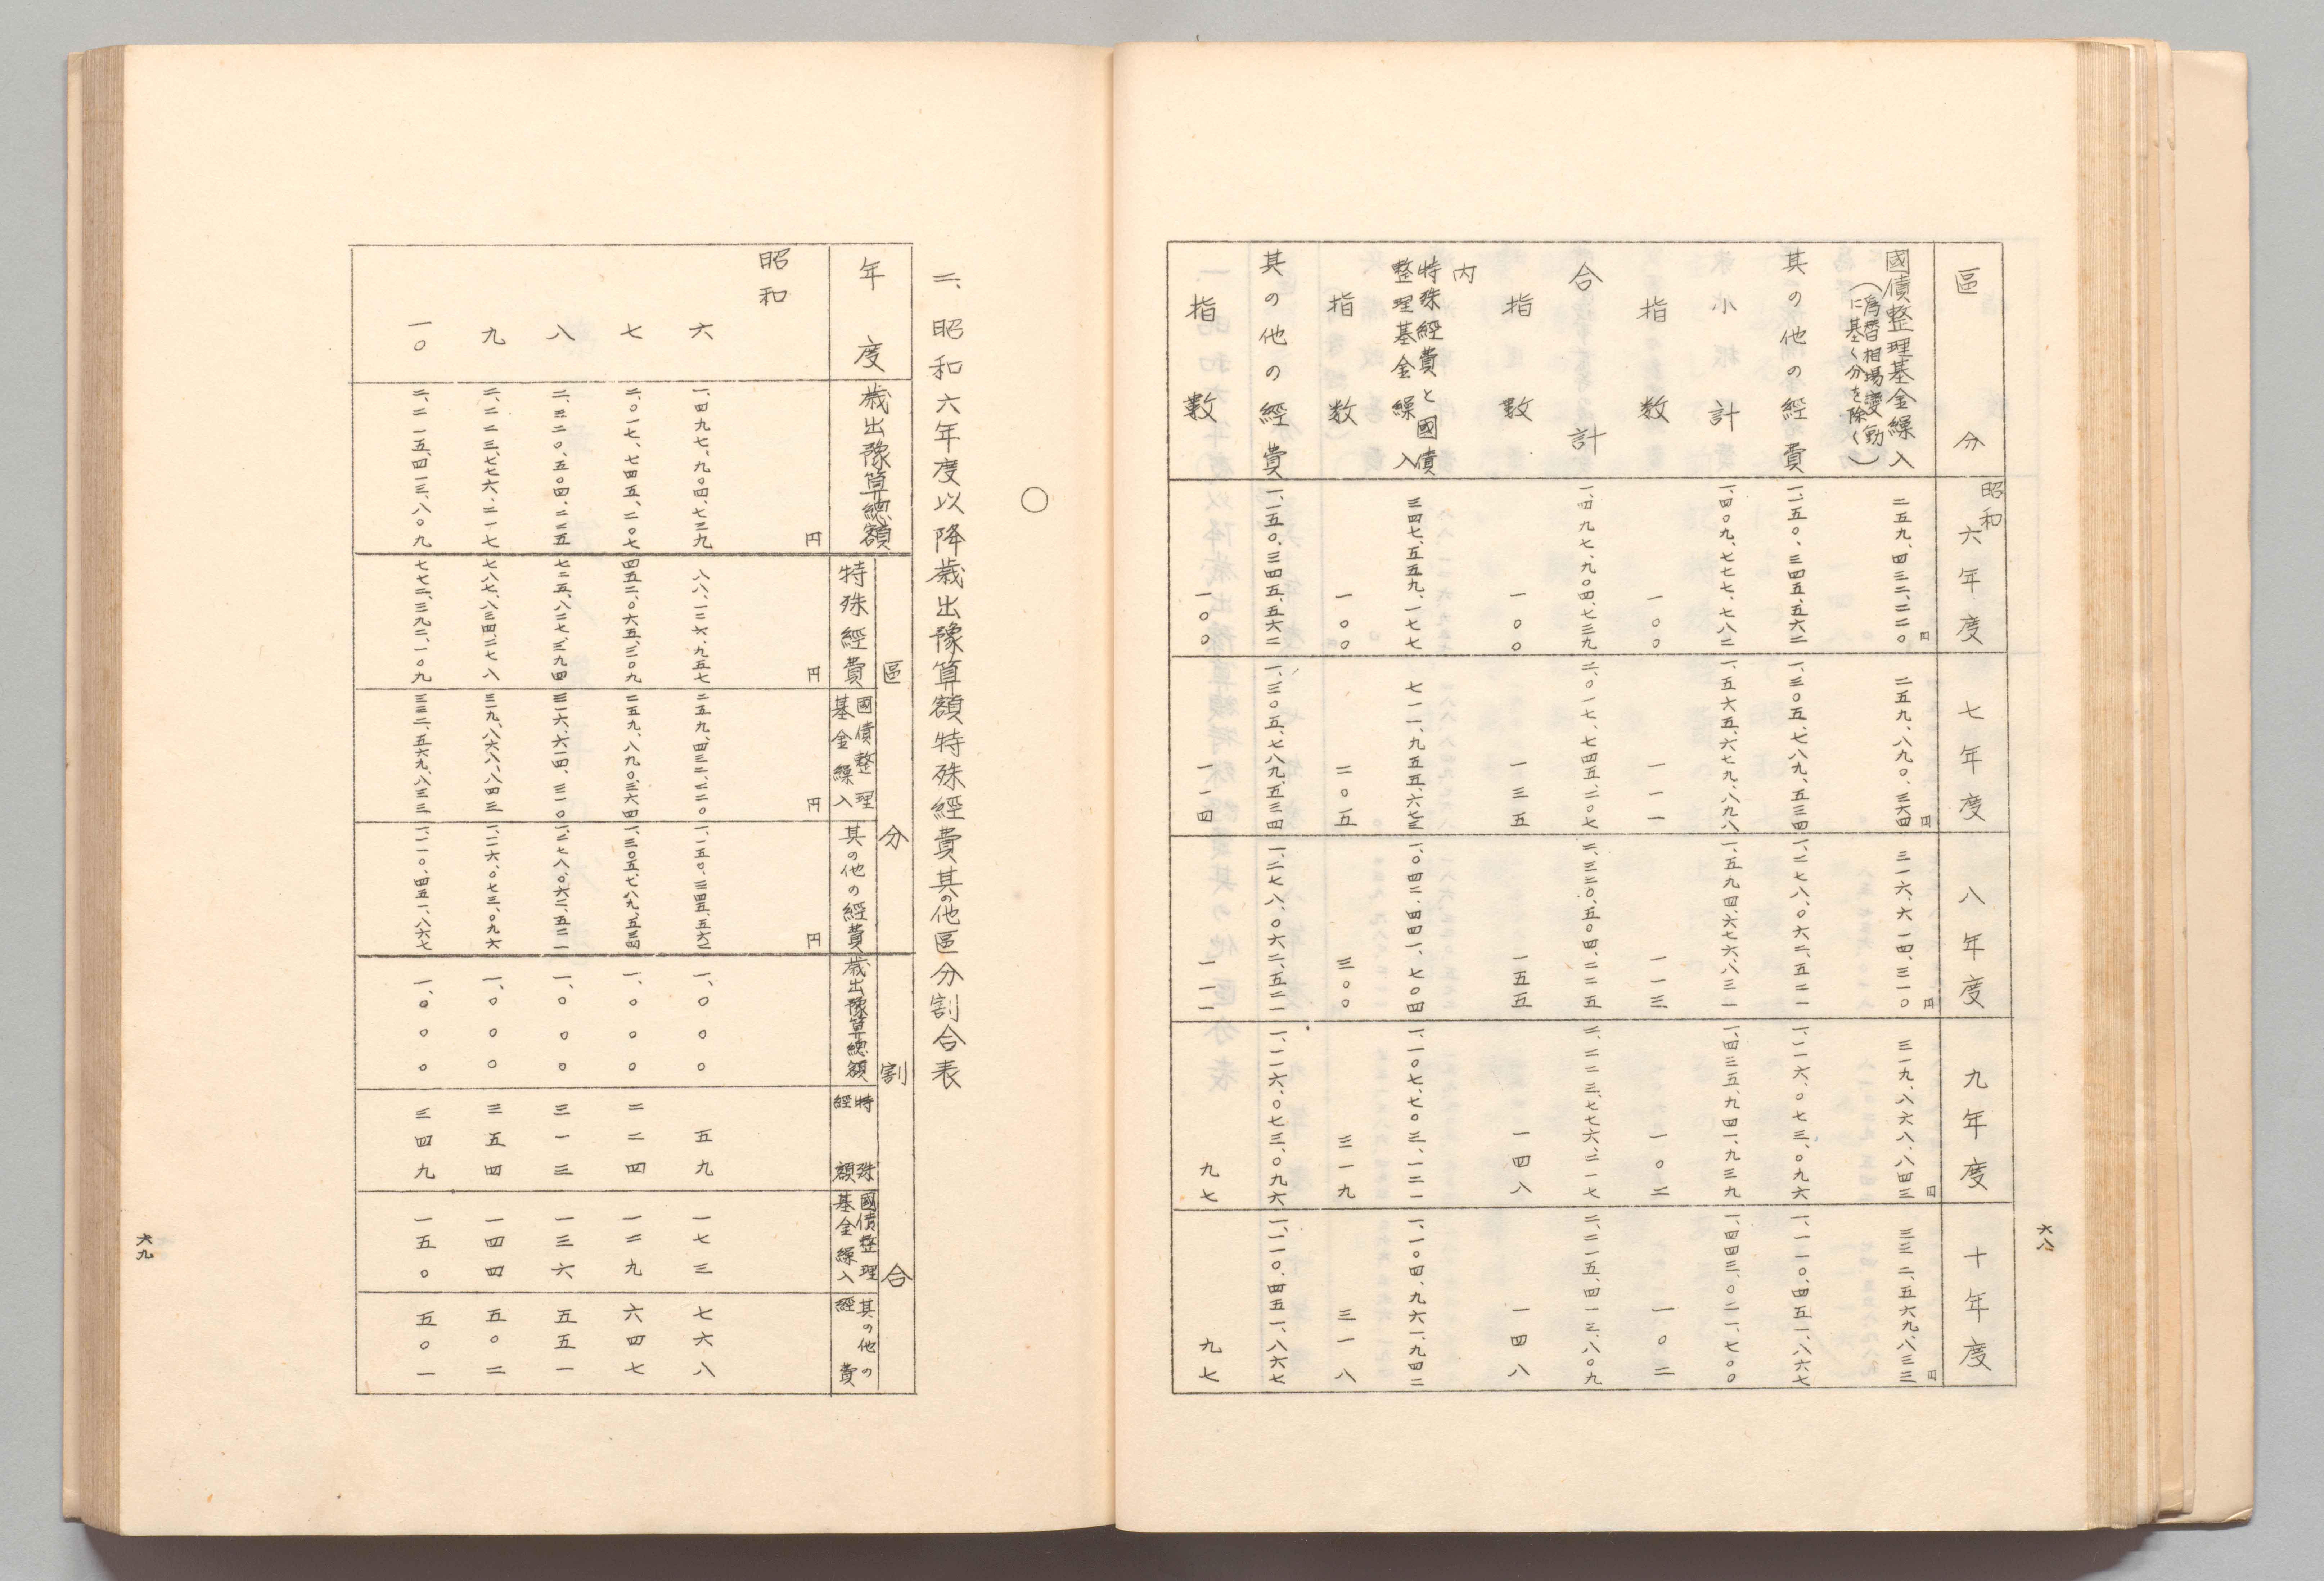 六八
區分 昭和六年度 七年度 八年度 九年度 十年度
國債整理基金繰入 二五九、四三二、二二〇円 二五九、八九〇、三六四円 三一六、六一四、三一〇円 三一九、八六八、八四三円 三三二、五六九、八三三円
(為替相場變動
に基く分を除く)
其の他の經費 一、一五〇、三四五、五六二 一、三〇五、七八九、五三四 一、二七八、〇六二、五二一 一、一一六、〇七三、〇九六 一、一一〇、四五一、八六七
小計 一、四〇九、七七七、七八二 一、五六五、六七九、八九八 一、五九四、六七六、八三一 一、四三五、九四一、九三九 一、四四三、〇二一、七〇〇
指数 一〇〇 一一一 一一三 一〇二 一〇二
合計 一、四九七、九〇四、七三九 二、〇一七、七四五、二〇七 二、三二〇、五〇四、二二五 二、二二三、七七六、二一七 二、二一五、四一三、八〇九
指数 一〇〇 一三五 一五五 一四八 一四八
内
特殊經費と國債
整理基金繰入 三四七、五五九、一七七 七一一、九五五、六七三 一、〇四二、四四一、七〇四 一、一〇七、七〇三、一二一 一、一〇四、九六一、九四二
指数 一〇〇 二〇五 三〇〇 三一九 三一八
其の他の經費 一、一五〇、三四五、五六二 一、三〇五、七八九、五三四 一、二七八、〇六二、五二一 一、一一六、〇七三、〇九六 一、一一〇、四五一、八六七
指數 一〇〇 一一四 一一一 九七 九七
〇
二、昭和六年度以降歳出豫算額特殊經費其の他區分割合表
年度 歳出豫算總額 區分 割合
特殊經費 國債整理基金繰入 其の他の經費 歳出豫算總額 特殊經額 國債整理基金繰入 其の他の經費
昭和 円 円 円 円
六 一、四九七、九〇四、七三九 八八、一二六、九五七 二五九、四三二、二二〇 一、一五〇、三四五、五六二 一、〇〇〇 五九 一七三 七六八
七 二、〇一七、七四五、二〇七 四五二、〇六五、三〇九 二五九、八九〇、三六四 一、三〇五、七八九、五三四 一、〇〇〇 二二四 一二九 六四七
八 二、三二〇、五〇四、二二五 七二五、八二七、三九四 三一六、六一四、三一〇 一、二七八、〇六二、五二一 一、〇〇〇 三一三 一三六 五五一
九 二、二二三、七七六、二一七 七八七、八三四、二七八 三一九、八六八、八四三 一、一一六、〇七三、〇九六 一、〇〇〇 三五四 一四四 五〇二
一〇 二、二一五、四一三、八〇九 七七二、三九二、一〇九 三三二、五六九、八三三 一、一一〇、四五一、八六七 一、〇〇〇 三四九 一五〇 五〇一
六九